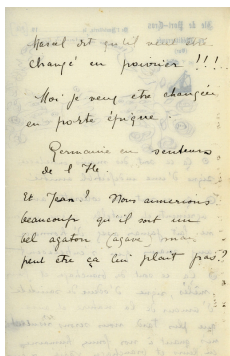 Marcel dit qu'il veut être
changé en poivrier !!!
Moi je veux être changée
en porte épique.
Germaine en senteurs
de l'Ile.
Et Jean ? Nous aimerions
beaucoup qu'il soit un
bel agaton (agave) mais
peut être ça lui plait pas ?